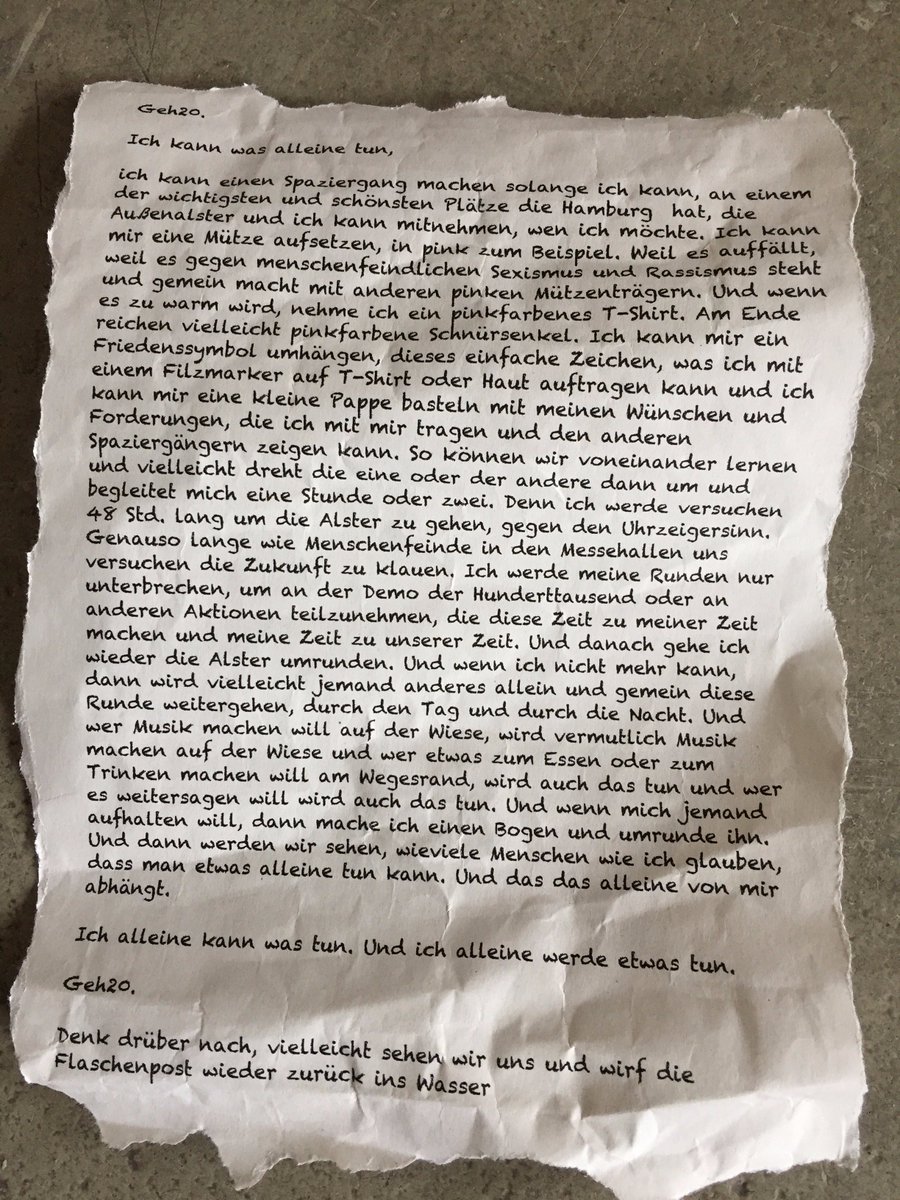 Geh20.
Ich kann was alleine tun,
ich kann einen Spaziergang machen solange ich kann, an einem
der wichtigsten und schönsten Plätze die Hamburg hat, die
Außenalster und ich kann mitnehmen, wen ich möchte. Ich kann
mir eine Mütze aufsetzen, in pink zum Beispiel. Weil es auffällt,
weil es gegen menschenfeindlichen Sexismus und Rassismus steht
und gemein macht mit anderen pinken Mützenträgern. Und wenn
es zu warm wird, nehme ich ein pinkfarbenes T-Shirt. Am Ende
reichen vielleicht pinkfarbene Schnürsenkel. Ich kann mir ein
Friedenssymbol umhängen, dieses einfache Zeichen, was ich mit
einem Filzmarker auf T-Shirt oder Haut auftragen kann und ich
kann mir eine kleine Pappe basteln mit meinen Wünschen und
Forderungen, die ich mit mir tragen und den anderen
Spaziergängern zeigen kann. So können wir voneinander lernen
und vielleicht dreht die eine oder der andere dann um und
begleitet mich eine Stunde oder zwei. Denn ich werde versuchen
48 Std. lang um die Alster zu gehen, gegen den Uhrzeigersinn.
Genauso lange wie Menschenfeinde in den Messehallen uns
versuchen die Zukunft zu klauen. Ich werde meine Runden nur
unterbrechen, um an der Demo der Hunderttausend oder an
anderen Aktionen teilzunehmen, die diese Zeit zu meiner Zeit
machen und meine Zeit zu unserer Zeit. Und danach gehe ich
wieder die Alster umrunden. Und wenn ich nicht mehr kann,
dann wird vielleicht jemand anderes allein und gemein diese
Runde weitergehen, durch den Tag und durch die Nacht. Und
wer Musik machen will auf der Wiese, wird vermutlich Musik
machen auf der Wiese und wer etwas zum Essen oder zum
Trinken machen will am Wegesrand, wird auch das tun und wer
es weitersagen will wird auch das tun. Und wenn mich jemand
aufhalten will, dann mache ich einen Bogen und umrunde ihn.
Und dann werden wir sehen, wieviele Menschen wie ich glauben,
dass man etwas alleine tun kann. Und das das alleine von mir
abhängt.
Ich alleine kann was tun. Und ich alleine werde etwas tun.
Geh20.
Denk drüber nach, vielleicht sehen wir uns und wirf die
Flaschenpost wieder zurück ins Wasser